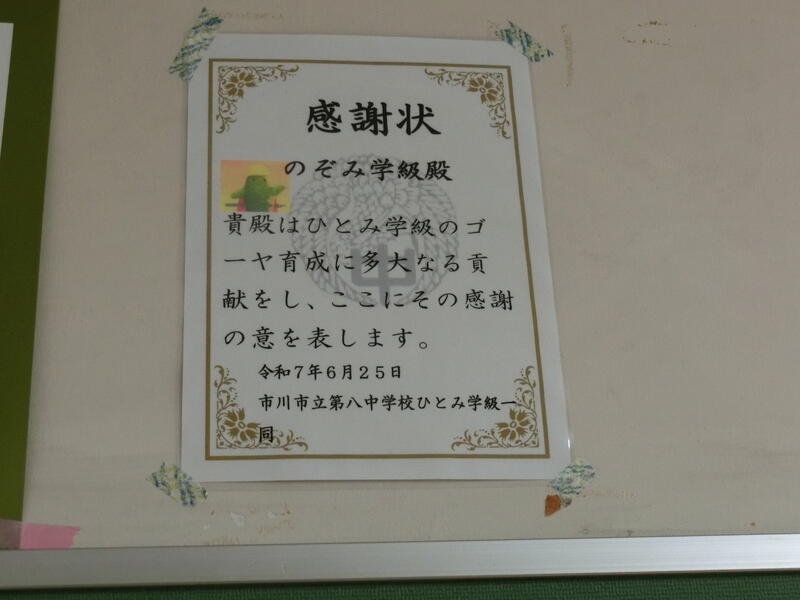 感謝状
のぞみ学級殿
貴殿はひとみ学級のゴ
ーヤ育成に多大なる貢
献をし、ここにその感謝
の意を表します。
令和7年6月25日
市川市立第八中学校ひとみ学級一
同
中